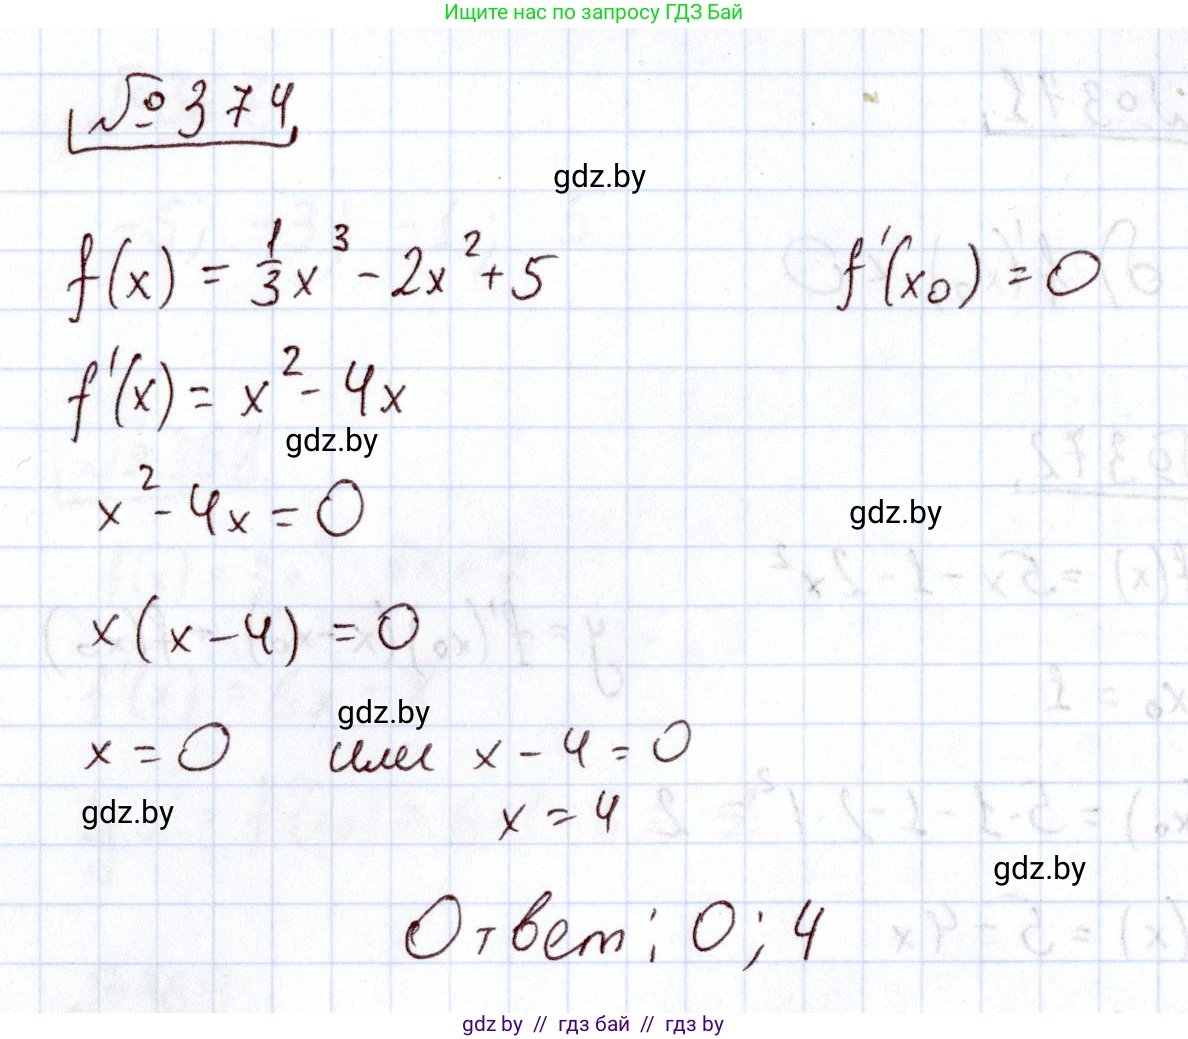 Ищите нас по запросу ГДЗ Бай
№ 374
gdz.by
f(x) = 1/3 x³ - 2x² + 5
f'(x₀) = 0
f'(x) = x² - 4x
gdz.by
x² - 4x = 0
gdz.by
x(x-4) = 0
gdz.by
x = 0 или x - 4 = 0
gdz.by
x = 4
gdz.by
Ответ: 0; 4
gdz by // гдз бай // гдз by